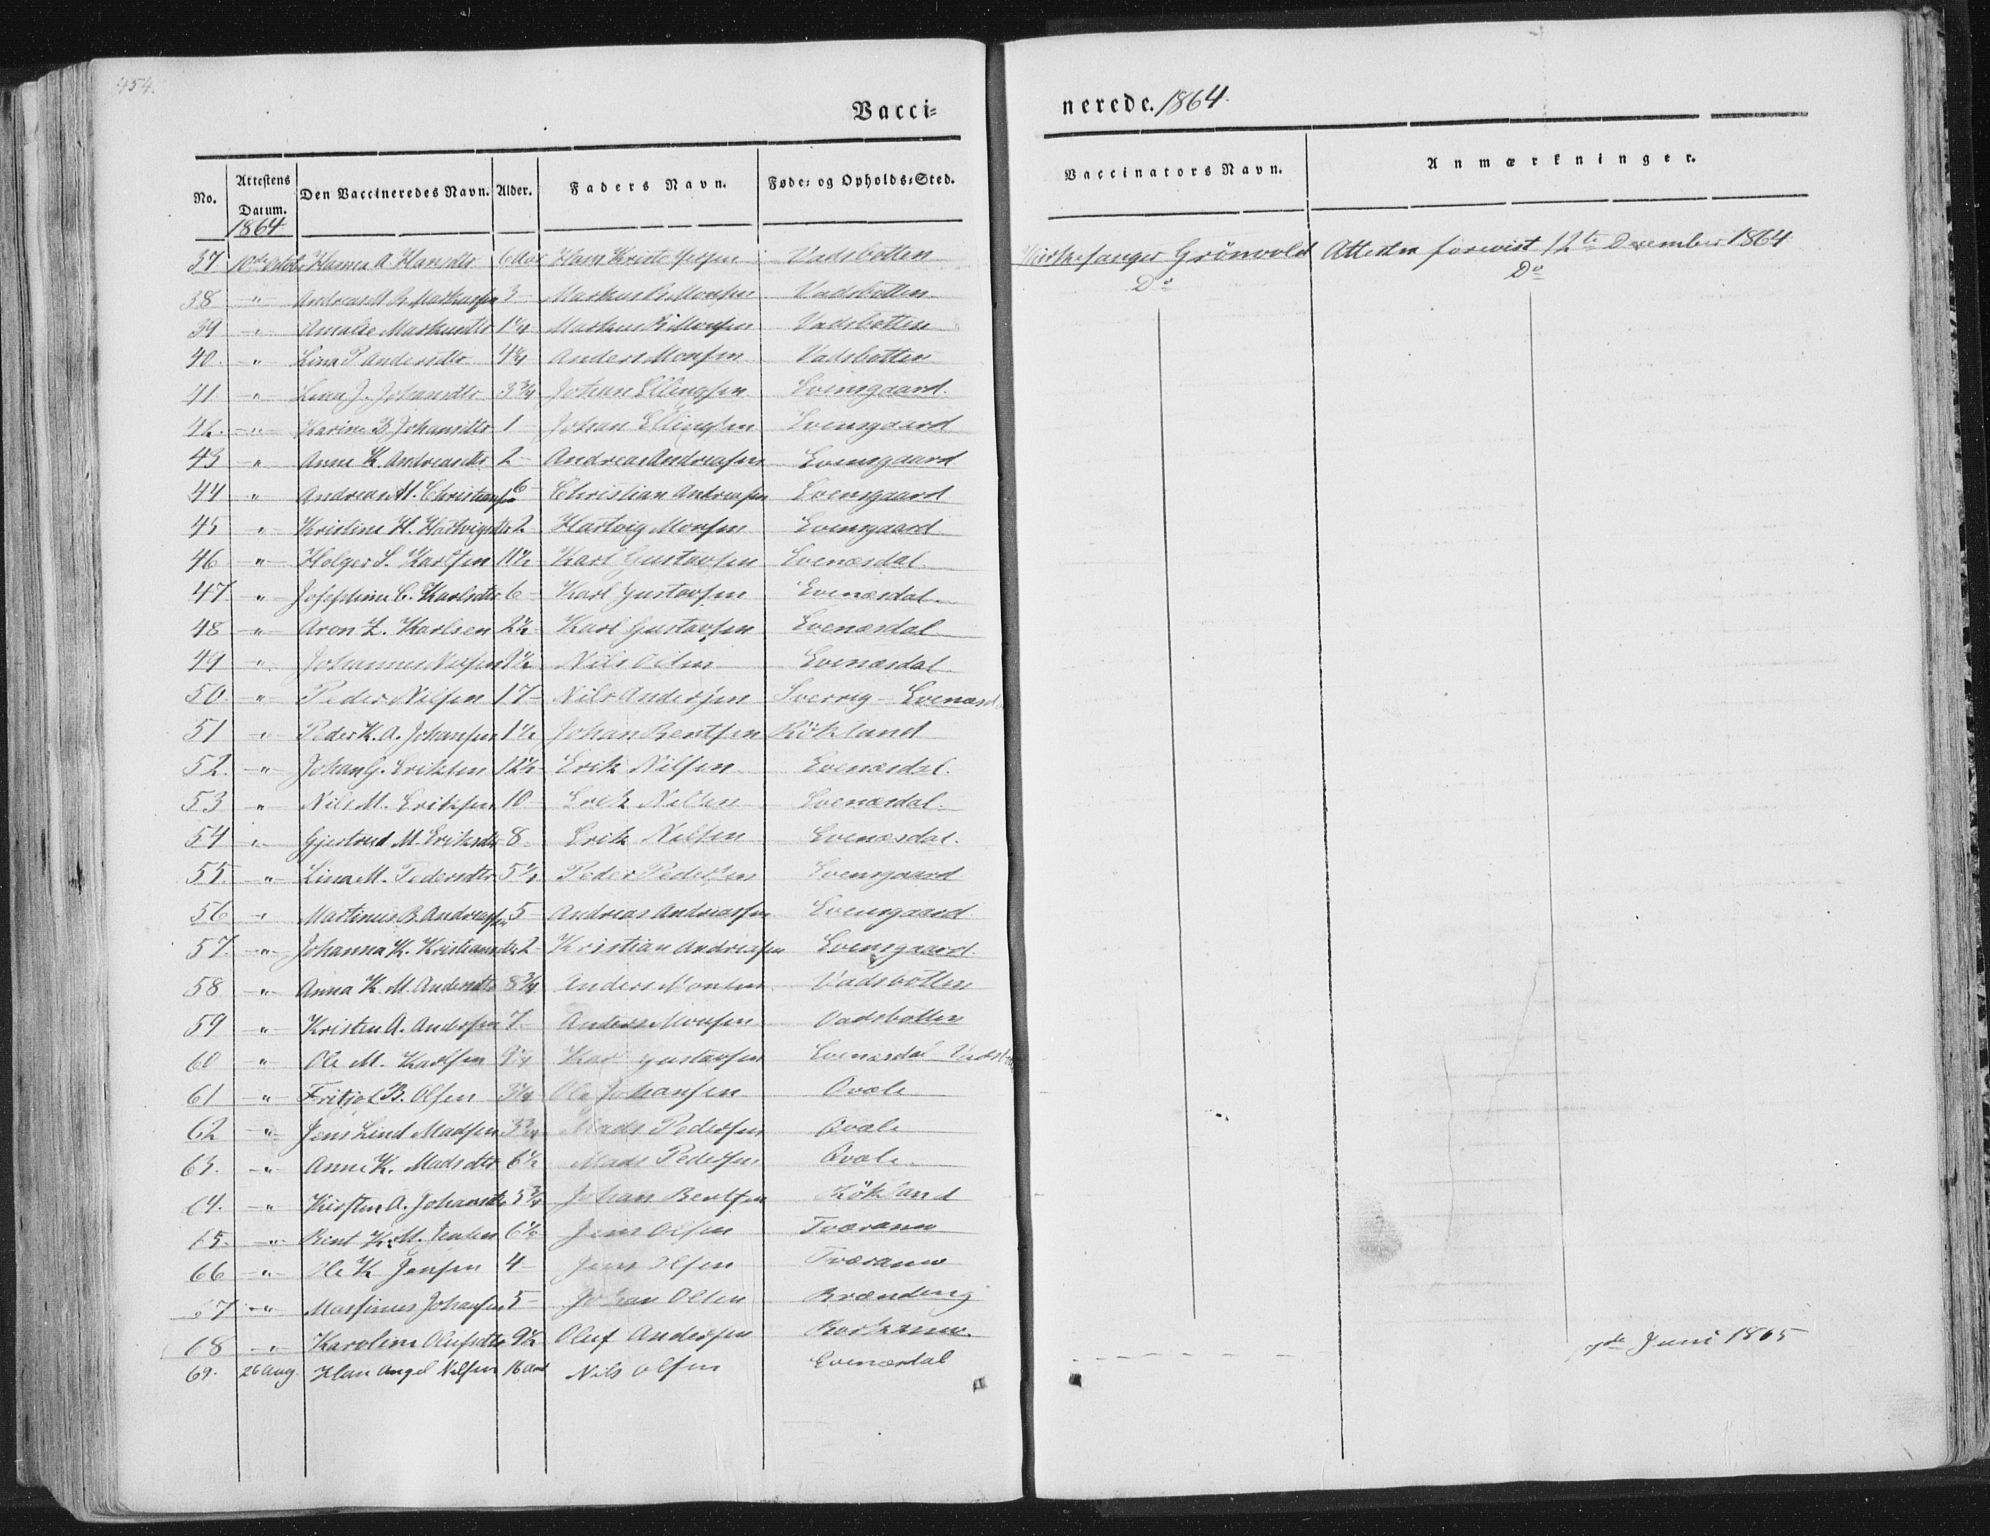 454.
Vacci-
nerede. 1864.
No. Attestens Datum. Den Vaccineredes Navn. Alder. Faders Navn. Føde- og Opholds-Sted. Vaccinators Navn. Anmærkninger.
1864
37 10de Octob Hanna A Hansdtr 6 Aar Hans Vadsbotten Kirkesanger Grönvold Attesten forevist 12te December 1864
38 " Andreas A B. Markussen 3 Markus B. Monsen Vadsbotten Do Do
39 " Amalie Markusdtr 1¼ Markus B Monsen Vadsbotten
40. " Lina P Andersdtr Anders Monsen Vadsbotten
41 " Lina J. Johansdtr 3¾ Johan Ellingsen Evensgaard.
42. " Karine B Johansdtr 1 Johan Ellingsen Evensgaard
43 " Anne K. Andreasdtr 2 Andreas Andreasen Evensgaard
44 " Andreas M. Christiansen 6 Christian Andreasen Evensgaard
45 " Kristine H. Hartvigsdtr 2 Hartvig Monsen Evensgaard
46 " Holger S. Karlsen 11½ Karl Gustavsen Evenæsdal.
47. " Josephine C. Karlsdtr 6 Karl Gustavsen Evenæsdal.
48 " Aron Z. Karlsen 2½ Karl Gustavsen Evenæsdal
49 " Johannes Nilsen 1½ Nils Olsen Evenæsdal
50. " Peder Nilsen 17 Nils Andersen Sverrig - Evenæsd
51 " Peder K. A. Johansen 1½ Johan Bentsen Rökland
52. " Johan G. Eriksen 12½ Erik Nilsen Evenæsdal.
53 " Nils M. Eriksen 10 Erik Nilsen Evenæsdal.
54 " Gjertrud M. Eriksdtr 8 Erik Nilsen Evenæsdal.
55. " Lina M. Pedersdtr Peder Pedersen Evensgaard
56 " Martinus B. Andreassen 5 Andreas Andreassen Evensgaard
57. " Johanna K. Kristiansdtr 2 Kristian Andreasen Evensgaard.
58 " Anna K. M. Andersdtr 8¾ Anders Monsen Vadsbotten
59 " Kristen A. Andersen 7 Anders Monsen Vadsbotten
60 " Ole M. Karlsen Karl Gustavsen Evenæsdal
61 " Fritjol B. Olsen Ole Johansen Qvale
62 " Jens Lind Madsen 3¾ Mads Pedersen Qvale
63. " Anne K. Madsdtr 6½ Mads Pedersen Qvale.
64. " Kirsten A. Johansdtr 5¾ Johan Bentsen Rökland
65. " Bent K. M. Jensen 6½ Jens Olsen Tværann
66 " Ole K Jensen 4 Jens Olsen Tværann
67 " Massinus Johansen 5 Johan Olsen Brænding
68 " Karoline Olufsdtr 9½ Oluf Andersen
69. 26 Aug. Hans Angel Nilsen 16 Aar Nils Olsen Evenæsdal 7de Juni 1865